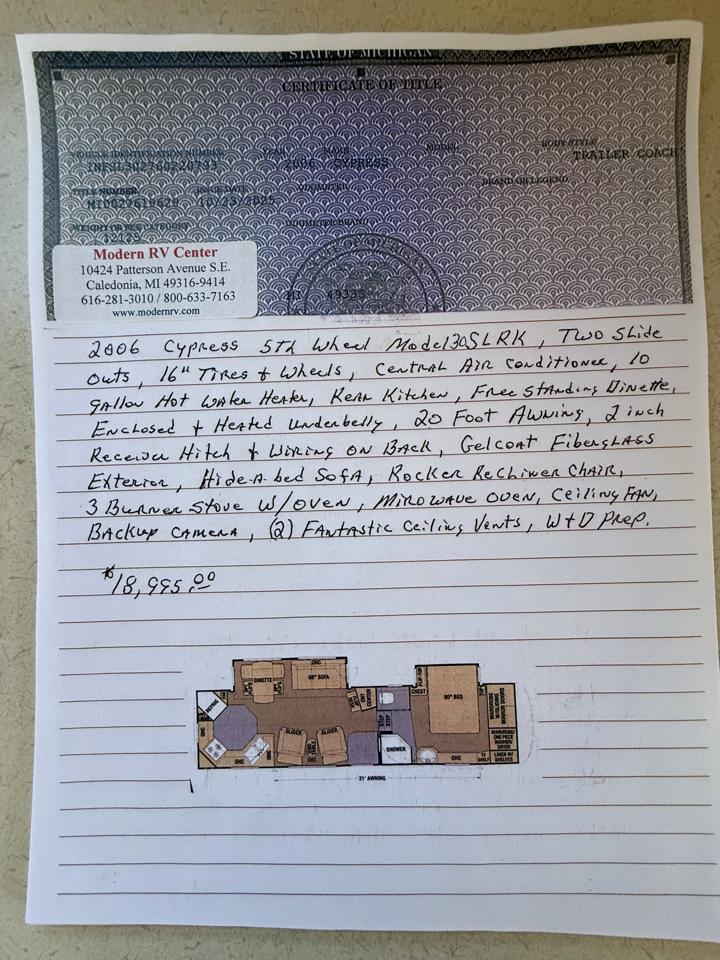 STATE OF MICHIGAN
CERTIFICATE OF TITLE
VEHICLE IDENTIFICATION NUMBER YEAR MAKE MODEL BODY STYLE
2006 CYPRESS TRAILER COACH
TITLE NUMBER ISSUE DATE ODOMETER BRAND OR LEGEND
10/23/2025
WEIGHT OR FEE CATEGORY ODOMETER BRAND
Modern RV Center
10424 Patterson Avenue S.E.
Caledonia, MI 49316-9414
616-281-3010 / 800-633-7163
www.modernrv.com
MI
2006 Cypress 5th Wheel Model 30SLRK, Two Slide
Outs, 16" Tires & Wheels, Central Air Conditioner, 10
gallon Hot Water Heater, Rear Kitchen, Free Standing Dinette,
Enclosed & Heated Underbelly, 20 Foot Awning, 2 inch
Receiver Hitch & Wiring on Back, Gelcoat Fiberglass
Exterior, Hide-A-bed Sofa, Rocker Recliner Chair,
3 Burner Stove w/oven, Mirowave oven, Ceiling Fan,
Backup Camera, (2) Fantastic Ceiling Vents, W+D Prep.
$18,995.00
OHC
DINETTE
68" SOFA
REFRIG
ENT CENTER
STEP
STEP
CHEST
60" BED
WARDROBE W/SLIDING MIRROR DOORS
OHC
GLIDER
GLIDER
SHOWER
WARDROBE/ ONE PIECE WASHER/ DRYER
OHC
OHC
OHC
OHC
TV SHELF
LINEN W/ SHELVES
21' AWNING